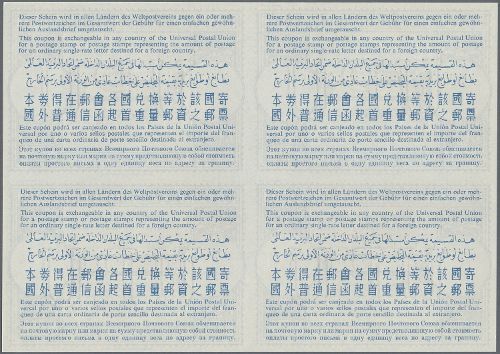 Dieser Schein wird in allen Ländern des Weltpostvereins gegen ein oder meh-
rere Postwertzeichen im Gesamtwert der Gebühr für einen einfachen gewöhn-
lichen Auslandsbrief umgetauscht.
This coupon is exchangeable in any country of the Universal Postal Union
for a postage stamp or postage stamps representing the amount of postage
for an ordinary single-rate letter destined for a foreign country.
هذه القسيمة يمكن استبدالها في جميع البلدان الداخلة ضمن اتحاد البريد العالمي
بطابع أو طوابع بقيمة التخليص على خطاب من الوزنة الأولى برسم الخارج
本券得在郵會各國兌換等於該國寄
國外普通信函起首重量郵資之郵票
Este cupón podrá ser canjeado en todos los Países de la Unión Postal Uni-
versal por uno o varios sellos postales que representen el importe del fran-
queo de una carta ordinaria de porte sencillo destinada al extranjero.
Этот купон во всех странах Всемирного Почтового Союза обменивается
на почтовую марку или марки на сумму представляющую собой стоимость
оплаты простого письма в одну единицу веса по адресу за границу.
Dieser Schein wird in allen Ländern des Weltpostvereins gegen ein oder meh-
rere Postwertzeichen im Gesamtwert der Gebühr für einen einfachen gewöhn-
lichen Auslandsbrief umgetauscht.
This coupon is exchangeable in any country of the Universal Postal Union
for a postage stamp or postage stamps representing the amount of postage
for an ordinary single-rate letter destined for a foreign country.
هذه القسيمة يمكن استبدالها في جميع البلدان الداخلة ضمن اتحاد البريد العالمي
بطابع أو طوابع بقيمة التخليص على خطاب من الوزنة الأولى برسم الخارج
本券得在郵會各國兌換等於該國寄
國外普通信函起首重量郵資之郵票
Este cupón podrá ser canjeado en todos los Países de la Unión Postal Uni-
versal por uno o varios sellos postales que representen el importe del fran-
queo de una carta ordinaria de porte sencillo destinada al extranjero.
Этот купон во всех странах Всемирного Почтового Союза обменивается
на почтовую марку или марки на сумму представляющую собой стоимость
оплаты простого письма в одну единицу веса по адресу за границу.
Dieser Schein wird in allen Ländern des Weltpostvereins gegen ein oder meh-
rere Postwertzeichen im Gesamtwert der Gebühr für einen einfachen gewöhn-
lichen Auslandsbrief umgetauscht.
This coupon is exchangeable in any country of the Universal Postal Union
for a postage stamp or postage stamps representing the amount of postage
for an ordinary single-rate letter destined for a foreign country.
هذه القسيمة يمكن استبدالها في جميع البلدان الداخلة ضمن اتحاد البريد العالمي
بطابع أو طوابع بقيمة التخليص على خطاب من الوزنة الأولى برسم الخارج
本券得在郵會各國兌換等於該國寄
國外普通信函起首重量郵資之郵票
Este cupón podrá ser canjeado en todos los Países de la Unión Postal Uni-
versal por uno o varios sellos postales que representen el importe del fran-
queo de una carta ordinaria de porte sencillo destinada al extranjero.
Этот купон во всех странах Всемирного Почтового Союза обменивается
на почтовую марку или марки на сумму представляющую собой стоимость
оплаты простого письма в одну единицу веса по адресу за границу.
Dieser Schein wird in allen Ländern des Weltpostvereins gegen ein oder meh-
rere Postwertzeichen im Gesamtwert der Gebühr für einen einfachen gewöhn-
lichen Auslandsbrief umgetauscht.
This coupon is exchangeable in any country of the Universal Postal Union
for a postage stamp or postage stamps representing the amount of postage
for an ordinary single-rate letter destined for a foreign country.
هذه القسيمة يمكن استبدالها في جميع البلدان الداخلة ضمن اتحاد البريد العالمي
بطابع أو طوابع بقيمة التخليص على خطاب من الوزنة الأولى برسم الخارج
本券得在郵會各國兌換等於該國寄
國外普通信函起首重量郵資之郵票
Este cupón podrá ser canjeado en todos los Países de la Unión Postal Uni-
versal por uno o varios sellos postales que representen el importe del fran-
queo de una carta ordinaria de porte sencillo destinada al extranjero.
Этот купон во всех странах Всемирного Почтового Союза обменивается
на почтовую марку или марки на сумму представляющую собой стоимость
оплаты простого письма в одну единицу веса по адресу за границу.